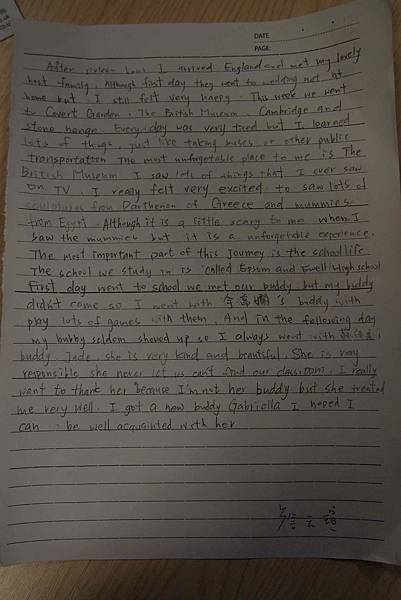 DATE
PAGE:
After sixteen hours I arrived England and met my lovely
host family. Although first day they went to wedding not at
home but I still felt very happy. This week we went
to Covert Garden. The British Museum. Cambridge and
stone henge. Every day was very tired but I learned
lots of things, just like taking buses or other public
transportation The most unforgetable place to me is The
British Museum I saw lots of things that I ever saw
on TV. I really felt very excited to saw lots of
sculptures from Panthenon of Greece and mummies
from Egypt. Although it is a little scary to me when I
saw the mummies but it is a unforgetable experience.
The most important part of this journey is the school life
The school we study in is called Epsom and Ewell High school
First day went to school we met our buddy but my buddy
didn't come so I went with 's buddy with
play lots of games with them. And in the following day
my bubby seldom showed up so I always went with 's
buddy, Jade. she is very kind and beautiful. She is very
responsible she never let us can't find our classroom. I really
want to thank her because I'm not her buddy but she treated
me very well. I got a new buddy Gabriolla I hoped I
can be well acquainted with her